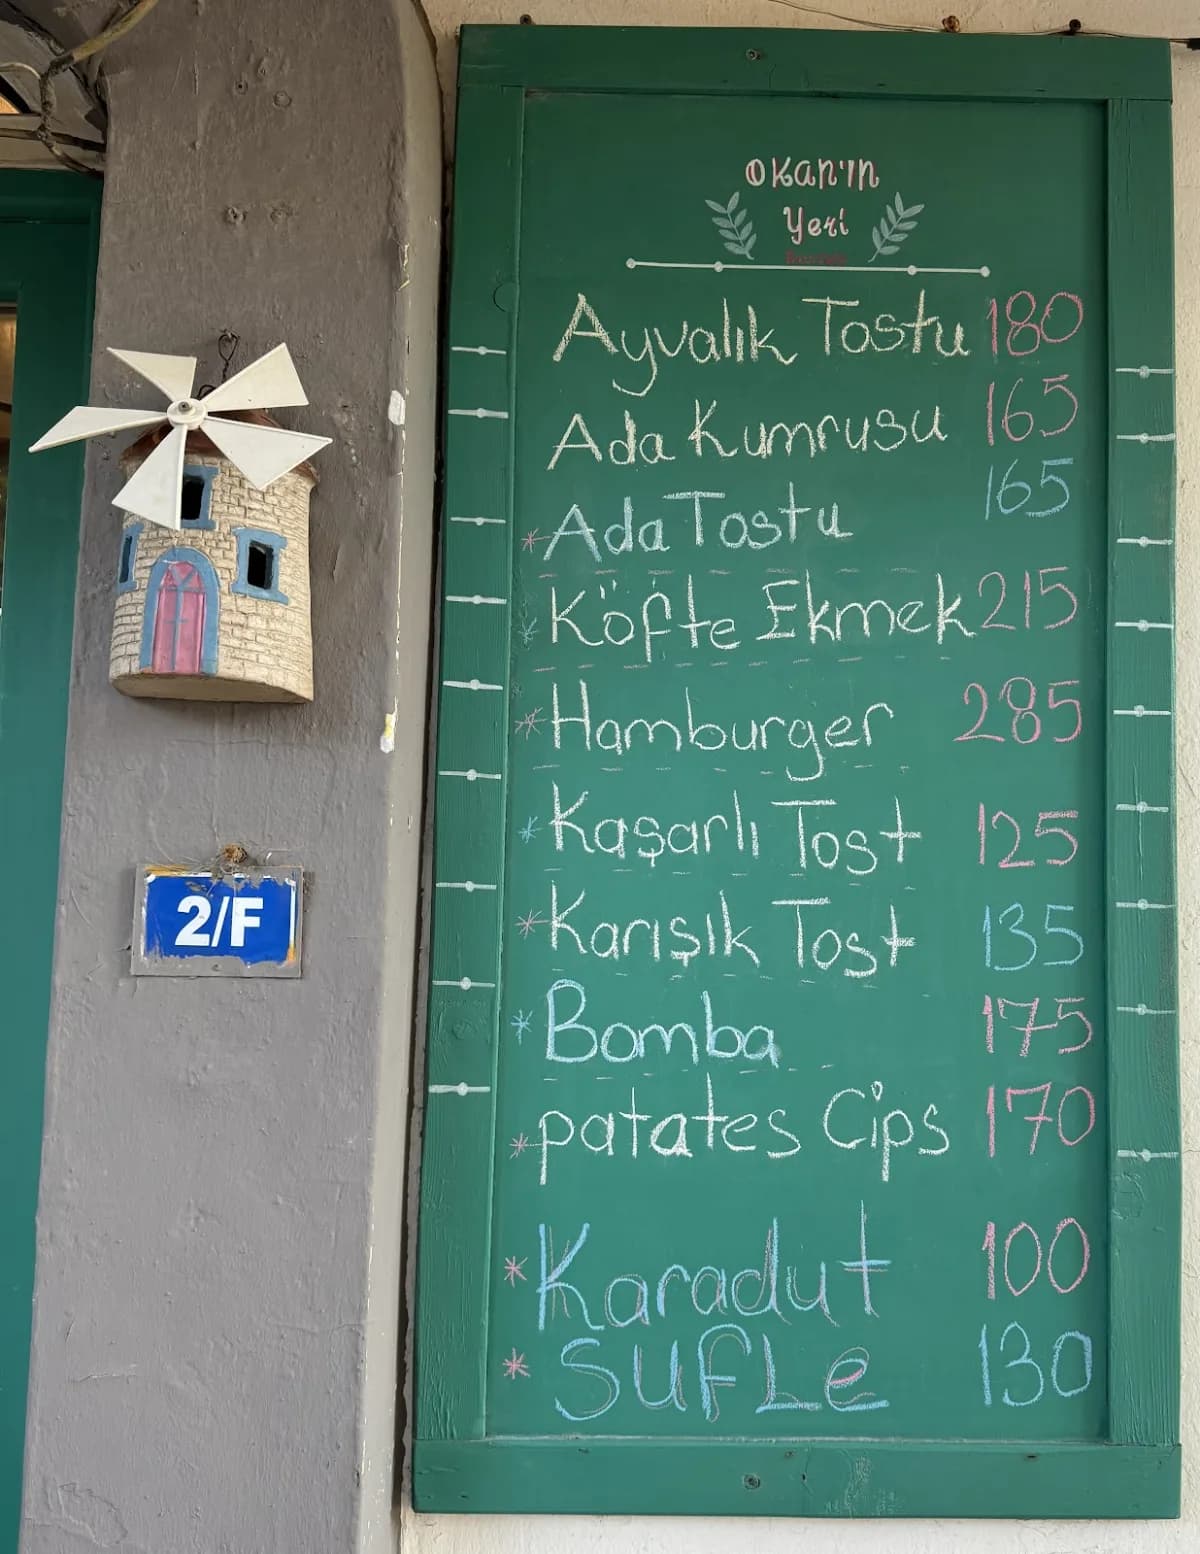 OKan'ın
Yeri
Ayvalık Tostu 180
Ada Kumrusu 165
*Ada Tostu 165
*Köfte Ekmek 215
*Hamburger 285
*Kaşarlı Tost 125
*Karışık Tost 135
*Bomba 175
*patates Cips 170
*Karadut 100
*SUFLe 130
2/F